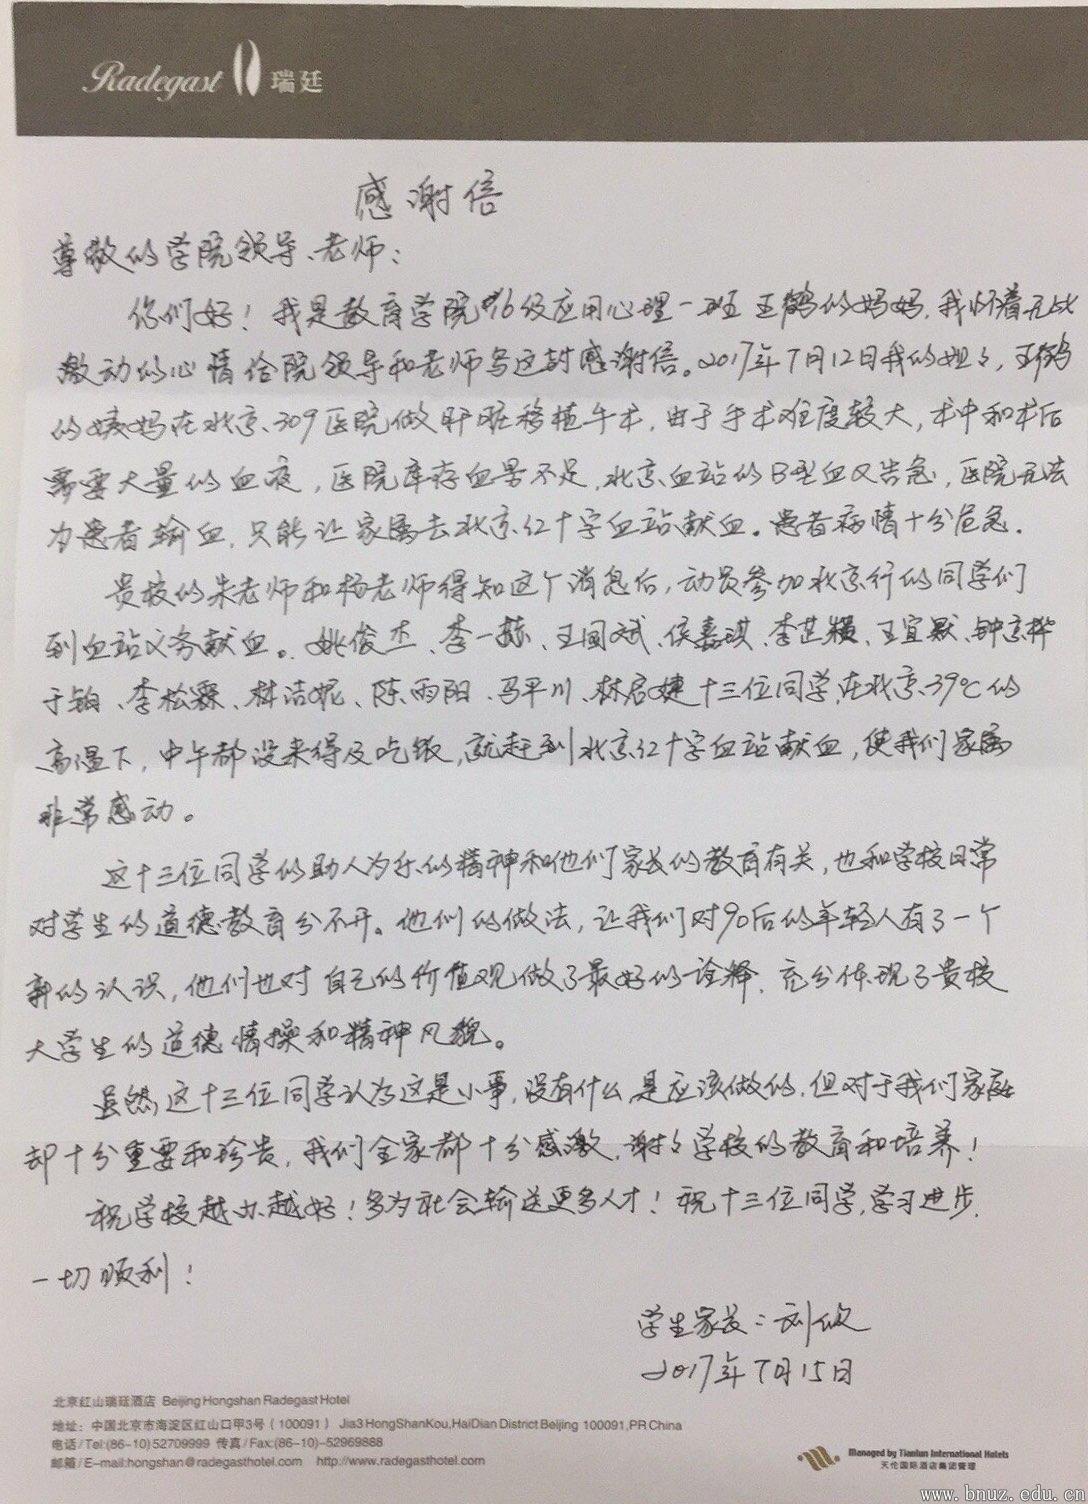 Radegast 瑞廷
感谢信
尊敬的学院领导、老师：
你们好！我是教育学院16级应用心理一班王鹤的妈妈，我怀着无比
激动的心情给院领导和老师写这封感谢信。2017年7月12日我的姐々，王鹤
的姨妈在北京309医院做肝脏移植手术，由于手术难度较大，术中和术后
需要大量的血液，医院库存血量不足，北京血站的B型血又告急，医院无法
为患者输血，只能让家属去北京红十字血站献血。患者病情十分危急.
贵校的朱老师和杨老师得知这个消息后，动员参加北京行的同学们
到血站义务献血。姚俊杰、李一赫、王国斌、侯嘉琪、李芷颖、王宜默、钟京桦
于铂、李松霖、林洁妮、陈雨阳、马平川、林启婕十三位同学，在北京39℃的
高温下，中午都没来得及吃饭，就赶到北京红十字血站献血，使我们家属
非常感动。
这十三位同学的助人为乐的精神和他们家长的教育有关，也和学校日常
对学生的道德教育分不开。他们的做法，让我们对90后的年轻人有了一个
新的认识，他们也对自己的价值观做了最好的诠释，充分体现了贵校
大学生的道德情操和精神风貌。
虽然这十三位同学认为这是小事，没有什么，是应该做的，但对于我们家庭
却十分重要和珍贵，我们全家都十分感激，谢々学校的教育和培养！
祝学校越办越好！多为社会输送更多人才！祝十三位同学，学习进步，
一切顺利！
学生家长：刘欣
2017年7月15日
北京红山瑞廷酒店 Beijing Hongshan Radegast Hotel
地址：中国北京市海淀区红山口甲3号（100091） Jia3 HongShanKou,HaiDian District Beijing 100091,PR China
电话/Tel:(86-10)52709999 传真/Fax:(86-10)-52969888
邮箱/E-mail:hongshan@radegasthotel.com http://www.radegasthotel.com
Managed by Tianlun International Hotels
天伦国际酒店集团管理
www.bnuz.edu.cn